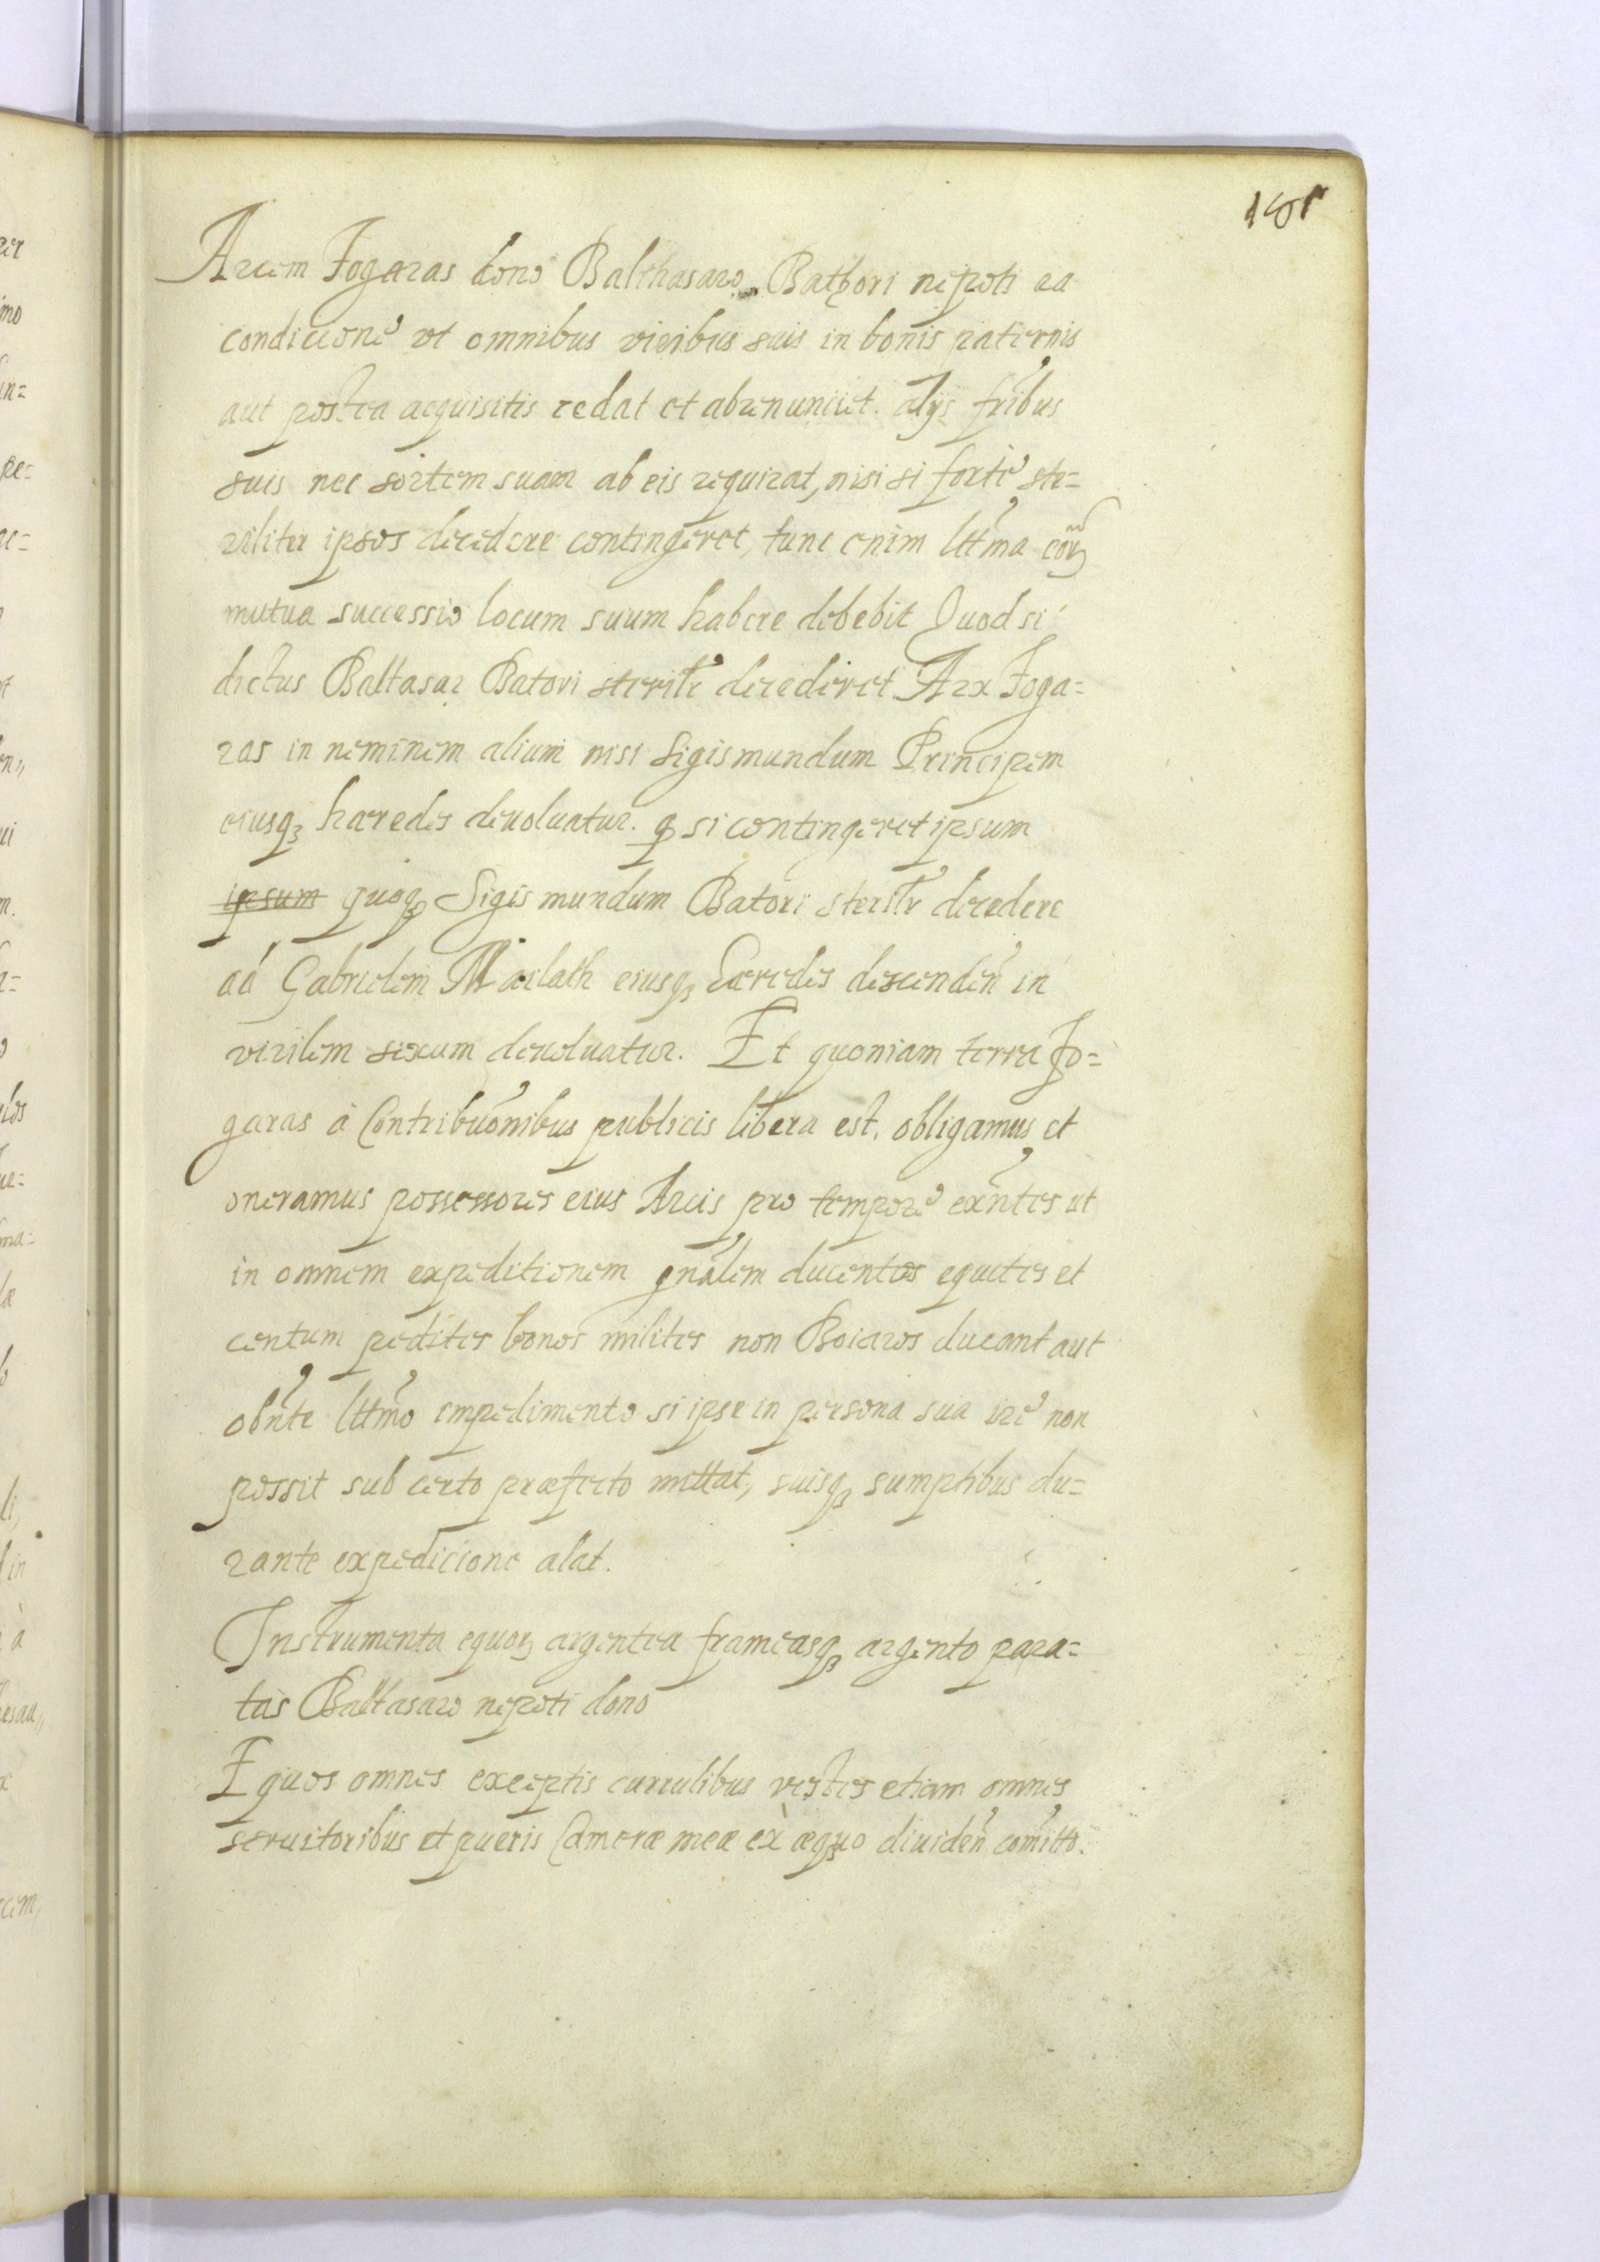 Arcem Fogaras dono Balthasaro Bathori nepoti ea
condicione vt omnibus viribus suis in bonis paternis
aut postea acquisitis cedat et abrenunciet. alijs fribus
suis nec sortem suam ab eis requirat, nisi si forte ste=
riliter ipsos decedere contingeret, tunc enim lttma eorꝫ
mutua successio locum suum habere debebit Quod si
dictus Baltasar Batori sterilr decederet Arx Foga=
ras in neminem alium nisi Sigismundum Principem
eiusqꝫ haeredes deuoluatur. qd si contingeret ipsum
ipsum quoqꝫ Sigismundum Batori sterilr decedere
ad Gabrielem Mailath eiusqꝫ Haeredes descenden in
virilem sexum deuoluatur. Et quoniam terra Fo=
garas à Contribuonibus publicis libera est. obligamus et
oneramus possessores eius Arcis pro tempore exntes ut
in omnem expeditionem gnalem ducentos equites et
centum pedites bonos milites non Boiaros ducant aut
obnte lttmo impedimento si ipse in persona sua ire non
possit sub certo præfecto mittat, suisqꝫ sumptibus du=
rante expedicione alat.
Instrumenta equorꝫ argentea frameasqꝫ argento para=
tas Baltasaro nepoti dono
Equos omnes exceptis currulibus vestes etiam omnes
seruitoribus et pueris Cameræ meæ ex æquo diuiden comitto.